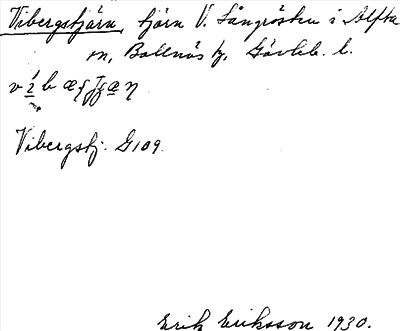 Vibergstjärn, tjärn V. Långrösten i Alfta
sn, Bollnäs tg, Gävleb. l.
Vibergstj. G109
Erik Eriksson 1930.